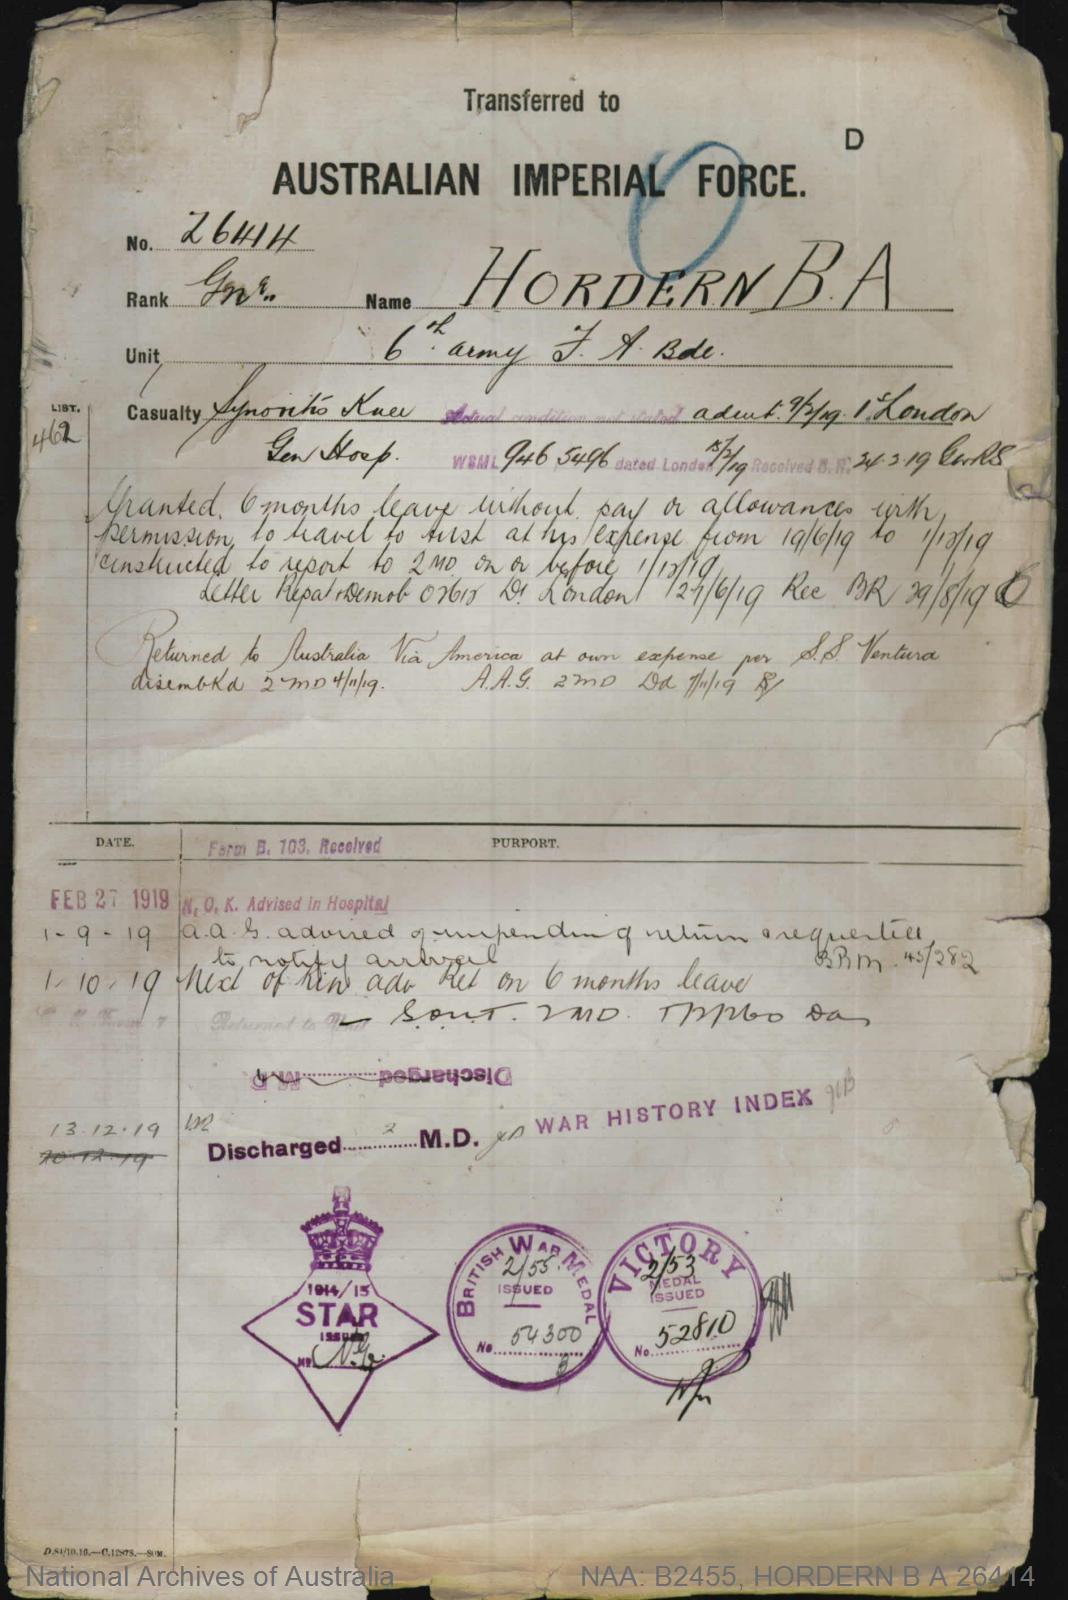 Transferred to
D
AUSTRALIAN IMPERIAL FORCE.
No. 26414
Rank Gnr. Name HORDERN B. A
Unit 6th army F. A. Bde.
LIST. 462
Casualty Synovitis Knee Actual condition not stated admt. 9/2/19. 1st London
Gen Hosp. WSML 946 5496 dated London /2/19 Received B.R. 24 2 19
Granted 6 months leave without pay or allowances with
permission to travel to Aust at his expense from 19/6/19 to 1/12/19
instructed to report to 2 MD on or before 1/12/19
Letter Repat & Demob Dd London 24/6/19 Rec BR 29/8/19
Returned to Australia Via America at own expense per S.S. Ventura
disembkd 2 MD 4/11/19. A.A.G. 2 MD Dd 7/11/19
DATE. Form B. 103. Received PURPORT.
FEB 27 1919 N. O. K. Advised in Hospital
1-9-19 A.A.G. advised of impending return & requested
to notify arrival BRM 45/282
1.10.19 Next of Kin adv Ret on 6 months leave
Returned to
2 MD.
Discharged M.D
13.12.19 Discharged 2 M.D. WAR HISTORY INDEX
20.12.19
1914/15
STAR
ISSUED
No
BRITISH WAR MEDAL
2/55
ISSUED
No 54300
VICTORY
2/53
MEDAL
ISSUED
No. 52810
D.84/10.16.—C.12878.—50M.
National Archives of Australia NAA: B2455, HORDERN B A 26414